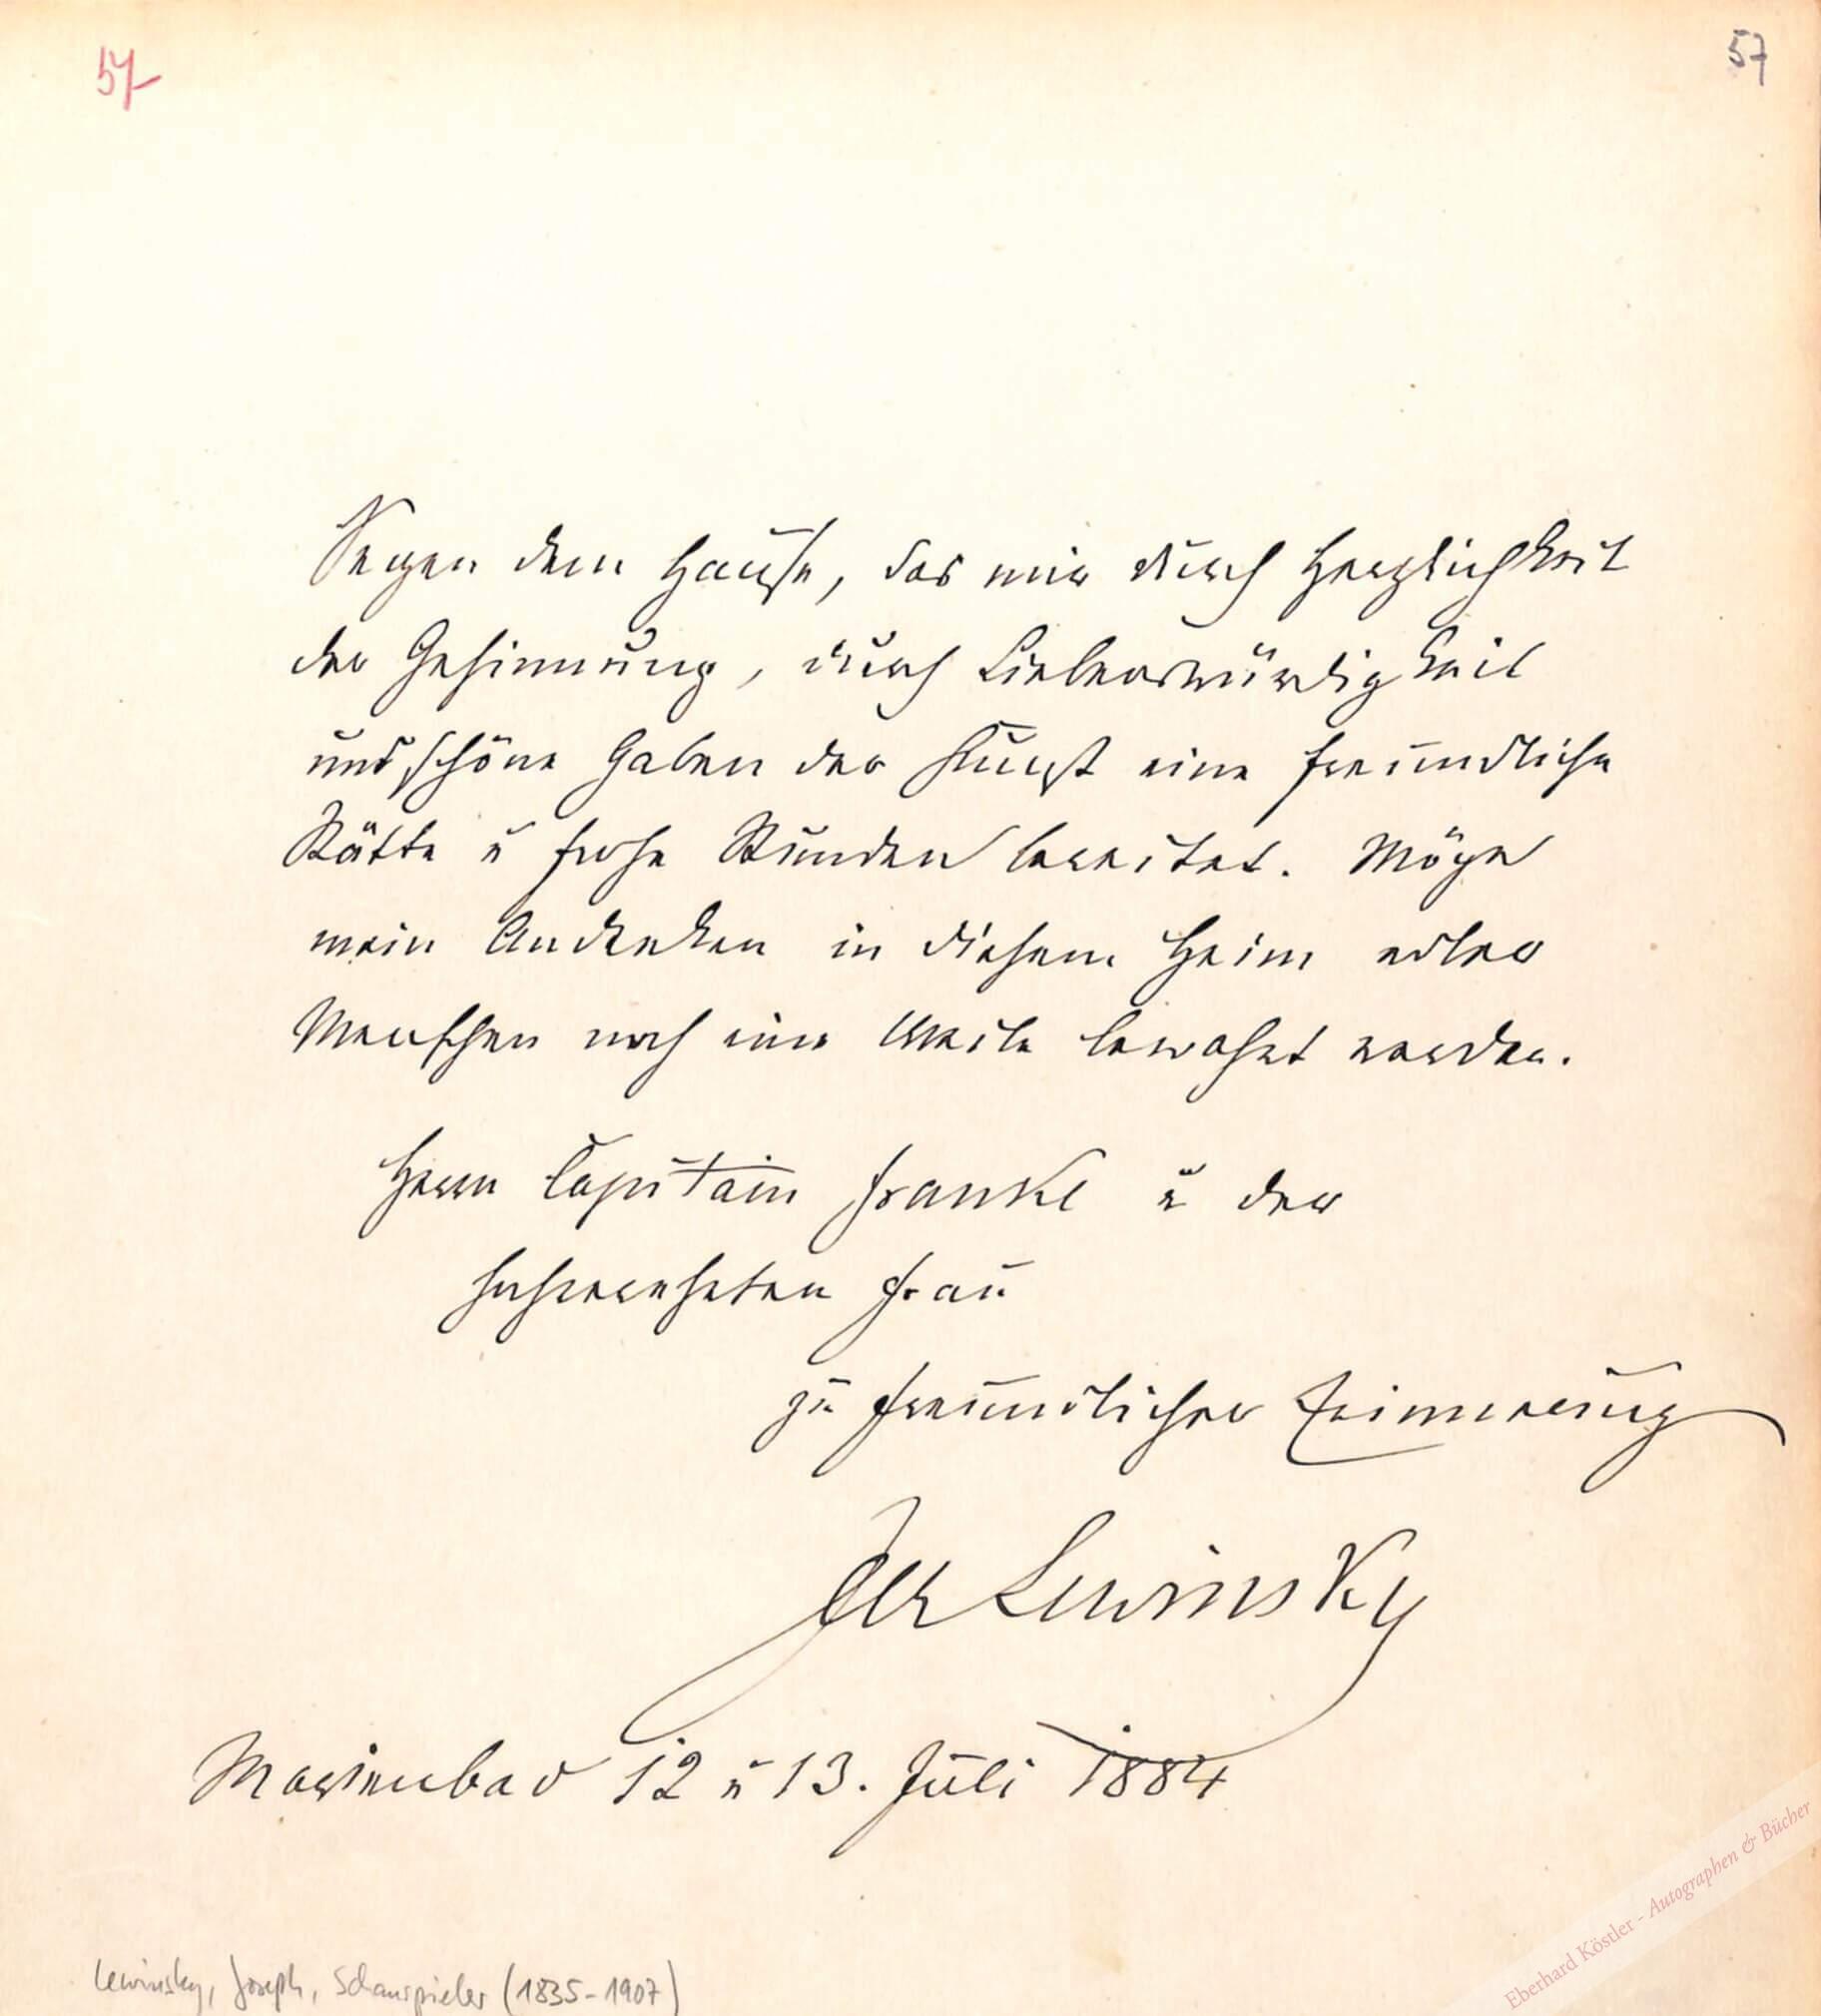 57
57
Segen dem Hause, das mir durch Herzlichkeit
der Gesinnung, durch Liebenswürdigkeit
und schöne Gaben der Kunst eine freundliche
Stätte u frohe Stunden bereitet. Möge
mein Andenken in diesem Heim edler
Menschen noch eine Weile bewahrt werden.
Herrn Capitain Frankl u der
hochverehrten Frau
zu freundlicher Erinnerung
Jos Lewinsky
Marienbad 12 u 13. Juli 1884
Lewinsky, Joseph, Schauspieler (1835-1907)
Eberhard Köstler - Autographen & Bücher